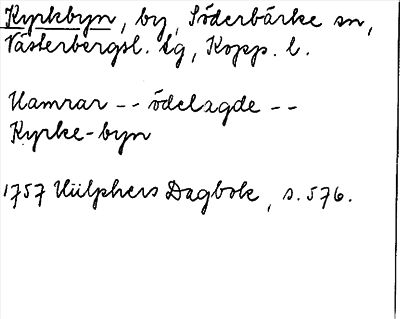 Kyrkbyn, by, Söderbärke sn,
Västerbergsl. tg, Kopp. l.
Hamrar -- ödelagde --
Kyrke-byn
1757 Hülphers Dagbok, s. 576.